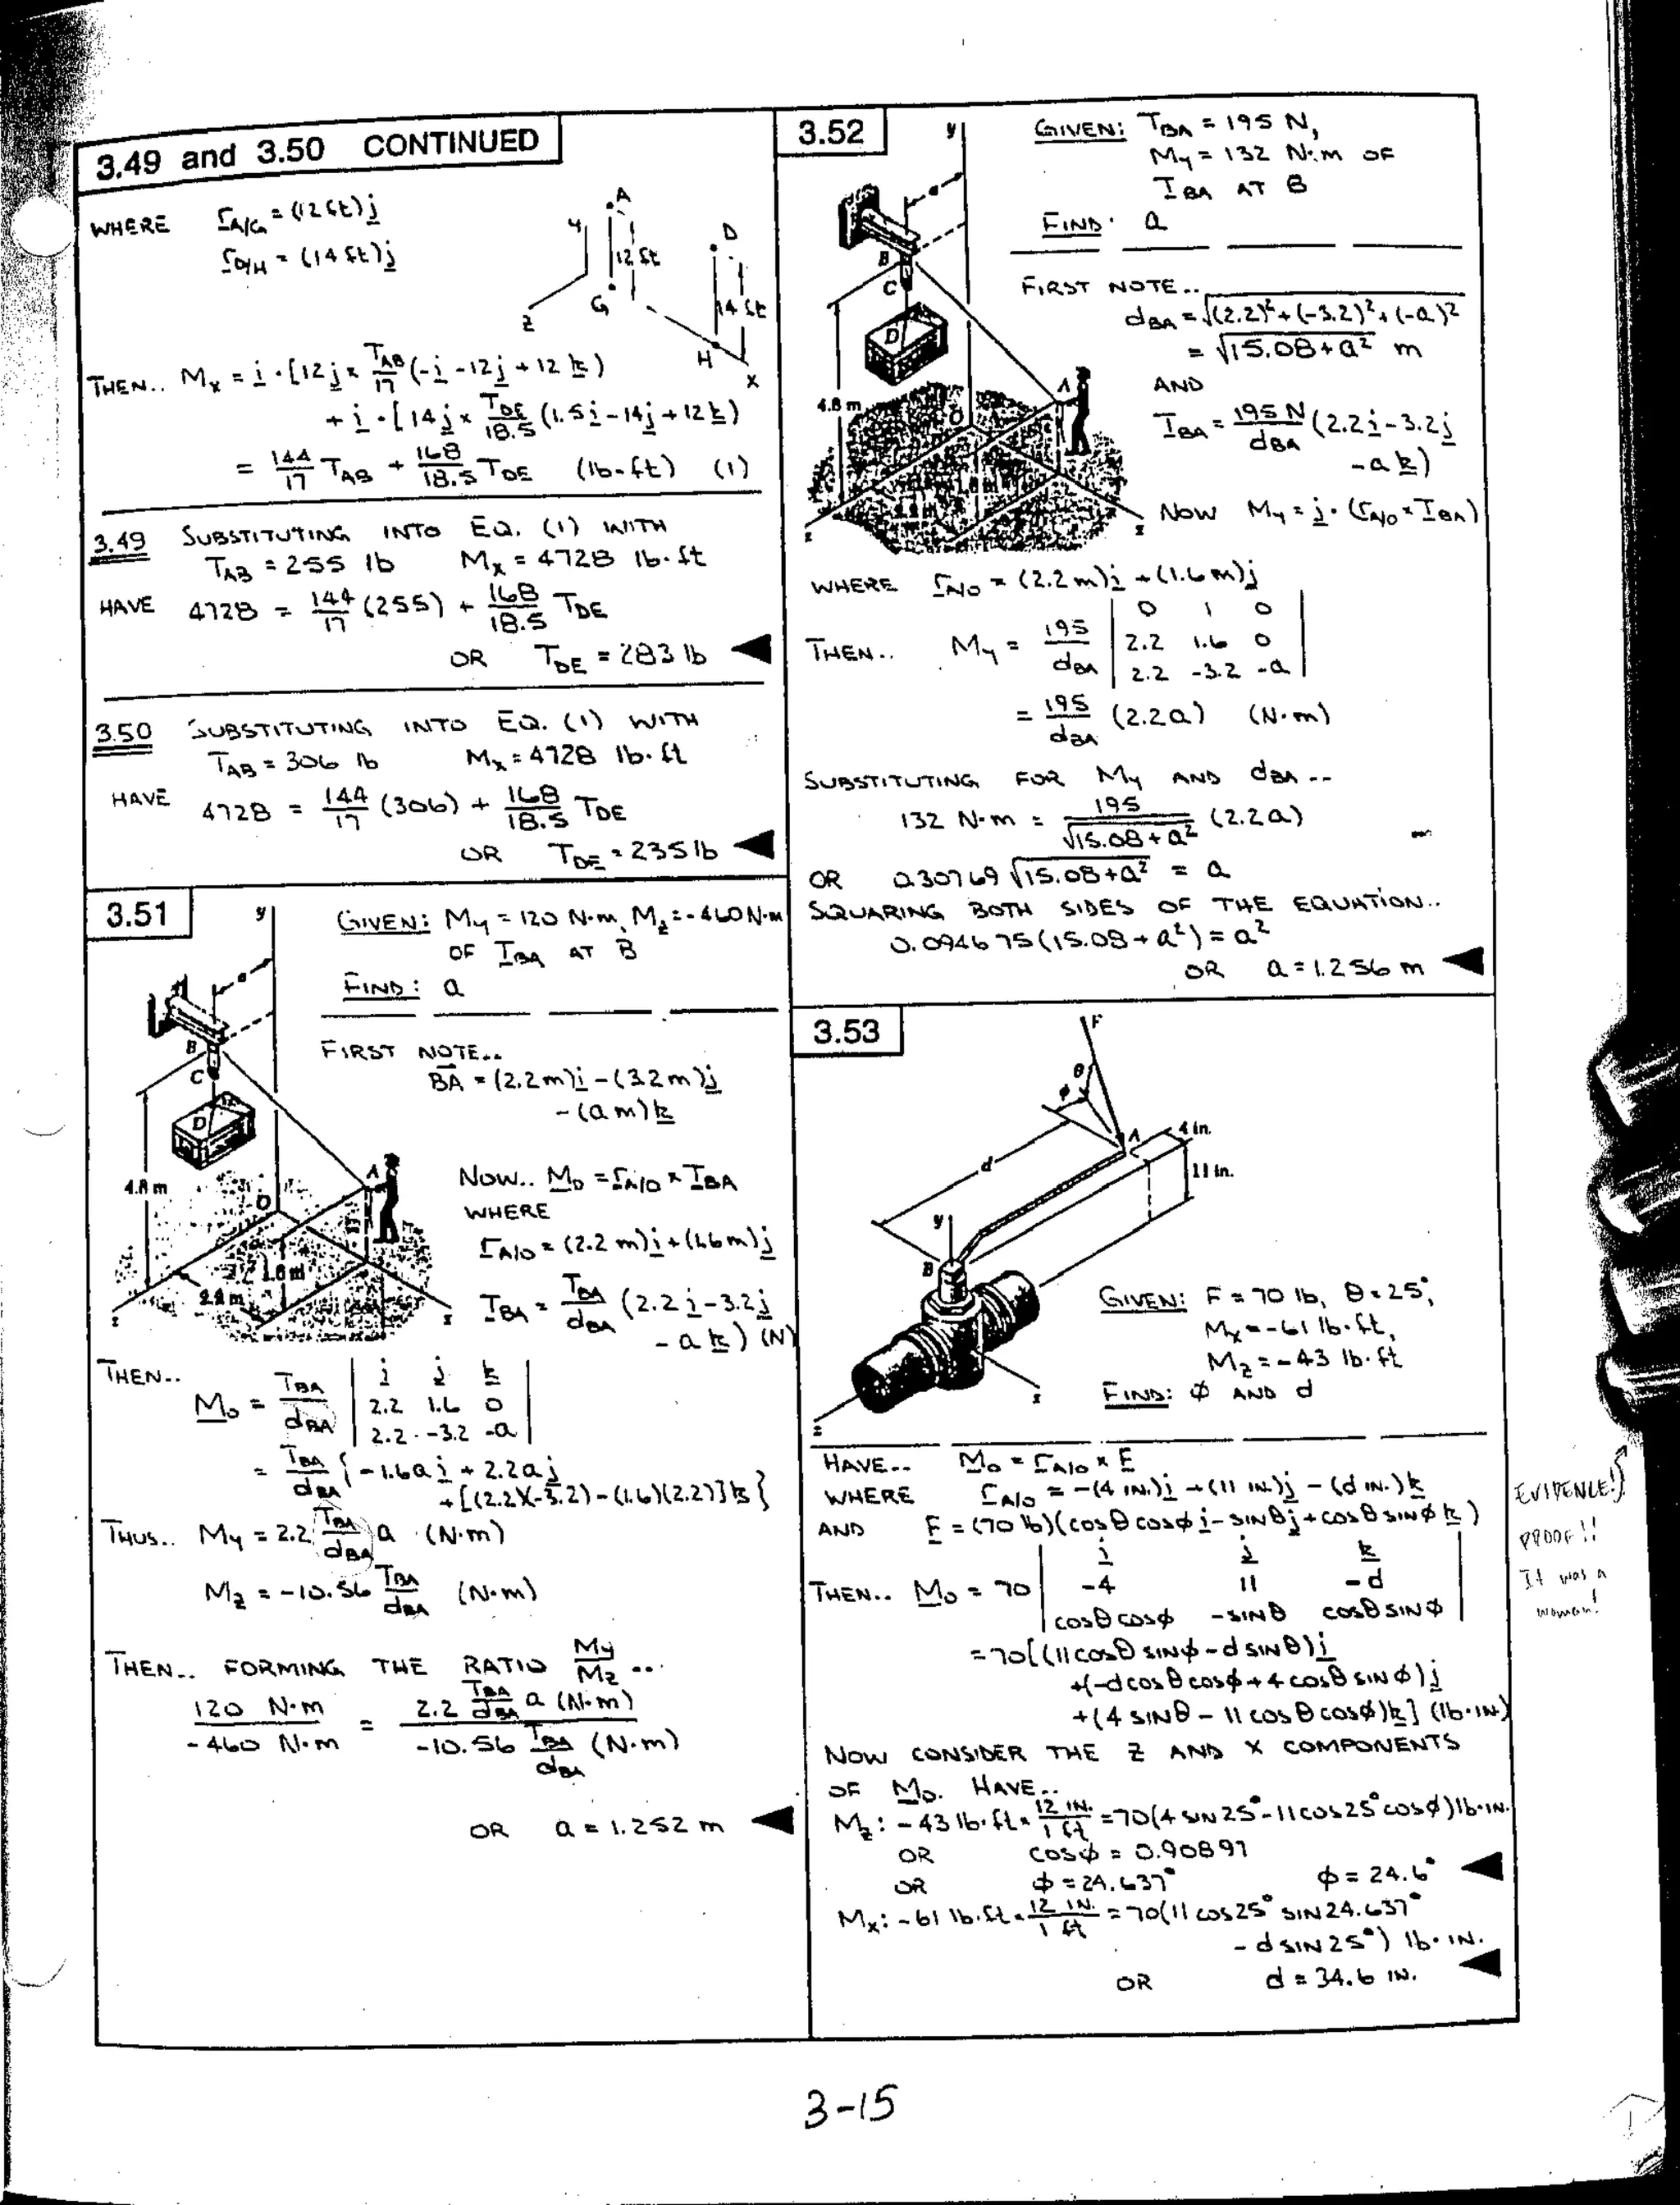 3.49 and 3.50 CONTINUED
WHERE r_A/G = (12 ft) j
r_D/H = (14 ft) j
y
A
12 ft
G
D
14 ft
H
z
x
THEN.. Mx = i · [12 j × T_AB/17 (-i - 12 j + 12 k)
+ i · [14 j × T_DE/18.5 (1.5 i - 14 j + 12 k)
= 144/17 T_AB + 168/18.5 T_DE (lb·ft) (1)
3.49 SUBSTITUTING INTO EQ. (1) WITH
T_AB = 255 lb Mx = 4728 lb·ft
HAVE 4728 = 144/17 (255) + 168/18.5 T_DE
OR T_DE = 283 lb ◀
3.50 SUBSTITUTING INTO EQ. (1) WITH
T_AB = 306 lb Mx = 4728 lb·ft
HAVE 4728 = 144/17 (306) + 168/18.5 T_DE
OR T_DE = 235 lb ◀
3.51
GIVEN: My = 120 N·m, Mz = -460 N·m
OF T_BA AT B
FIND: a
y
a
B
C
D
4.8 m
O
A
1.6 m
2.2 m
z
x
FIRST NOTE..
BA = (2.2 m) i - (3.2 m) j
- (a m) k
NOW.. M_O = r_A/O × T_BA
WHERE
r_A/O = (2.2 m) i + (1.6 m) j
T_BA = T_BA/d_BA (2.2 i - 3.2 j
- a k) (N)
THEN.. M_O = T_BA/d_BA | i j k |
| 2.2 1.6 0 |
| 2.2 -3.2 -a |
= T_BA/d_BA { -1.6a i + 2.2a j
+ [(2.2)(-3.2) - (1.6)(2.2)] k }
THUS.. My = 2.2 T_BA/d_BA a (N·m)
Mz = -10.56 T_BA/d_BA (N·m)
THEN.. FORMING THE RATIO My/Mz ...
120 N·m / -460 N·m = 2.2 T_BA/d_BA a (N·m) / -10.56 T_BA/d_BA (N·m)
OR a = 1.252 m ◀
3.52
GIVEN: T_BA = 195 N,
My = 132 N·m OF
T_BA AT B
FIND: a
y
a
B
C
D
4.8 m
O
A
z
x
FIRST NOTE..
d_BA = √(2.2)² + (-3.2)² + (-a)²
= √15.08 + a² m
AND
T_BA = 195 N/d_BA (2.2 i - 3.2 j
- a k)
NOW My = j · (r_A/O × T_BA)
WHERE r_A/O = (2.2 m) i + (1.6 m) j
THEN.. My = 195/d_BA | 0 1 0 |
| 2.2 1.6 0 |
| 2.2 -3.2 -a |
= 195/d_BA (2.2a) (N·m)
SUBSTITUTING FOR My AND d_BA --
132 N·m = 195/√15.08 + a² (2.2a)
OR 0.30769 √15.08 + a² = a
SQUARING BOTH SIDES OF THE EQUATION..
0.094675 (15.08 + a²) = a²
OR a = 1.256 m ◀
3.53
F
θ
φ
A
4 in.
11 in.
d
y
B
x
z
GIVEN: F = 70 lb, θ = 25°,
Mx = -61 lb·ft,
Mz = -43 lb·ft
FIND: φ AND d
HAVE.. M_O = r_A/O × F
WHERE r_A/O = -(4 IN.) i + (11 IN.) j - (d IN.) k
AND F = (70 lb)(cosθ cosφ i - sinθ j + cosθ sinφ k)
THEN.. M_O = 70 | i j k |
| -4 11 -d |
| cosθ cosφ -sinθ cosθ sinφ |
= 70[(11 cosθ sinφ - d sinθ) i
+ (-d cosθ cosφ + 4 cosθ sinφ) j
+ (4 sinθ - 11 cosθ cosφ) k] (lb·IN)
NOW CONSIDER THE Z AND X COMPONENTS
OF M_O. HAVE..
Mz: -43 lb·ft × 12 IN./1 ft = 70(4 sin25° - 11 cos25° cosφ) lb·IN.
OR cosφ = 0.90897
OR φ = 24.637° φ = 24.6° ◀
Mx: -61 lb·ft × 12 IN./1 ft = 70(11 cos25° sin24.637°
- d sin25°) lb·IN.
OR d = 34.6 IN. ◀
EVIDENCE!
PROOF!!
It was a
woman!
3-15